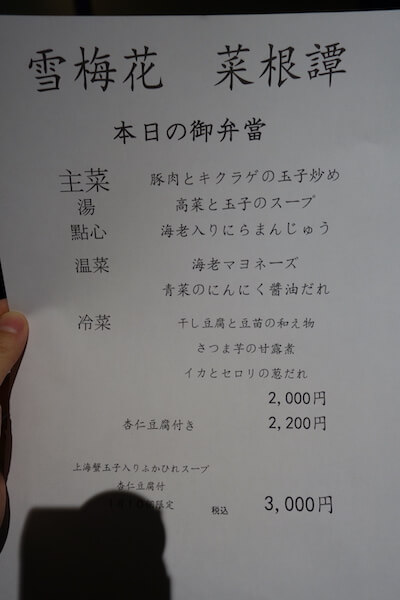 雪梅花 菜根譚
本日の御弁當
主菜 豚肉とキクラゲの玉子炒め
湯 高菜と玉子のスープ
點心 海老入りにらまんじゅう
温菜 海老マヨネーズ
青菜のにんにく醤油だれ
冷菜 干し豆腐と豆苗の和え物
さつま芋の甘露煮
イカとセロリの葱だれ
2,000円
杏仁豆腐付き 2,200円
上海蟹玉子入りふかひれスープ
杏仁豆腐付
限定 税込 3,000円